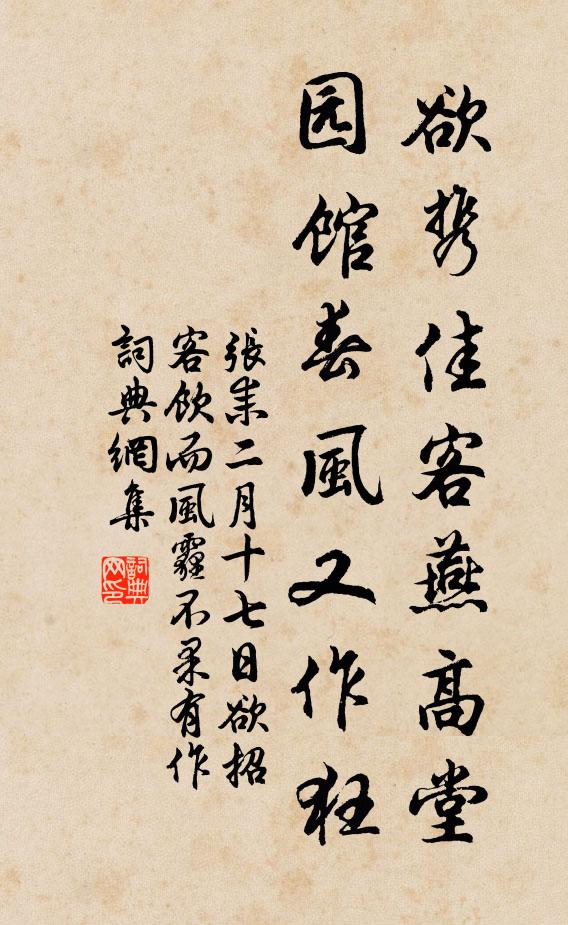 欲携佳客燕高堂
园馆春風又作狂
張耒二月十七日欲招
客飲而風霾不果有作
詞典網集
詞典網印